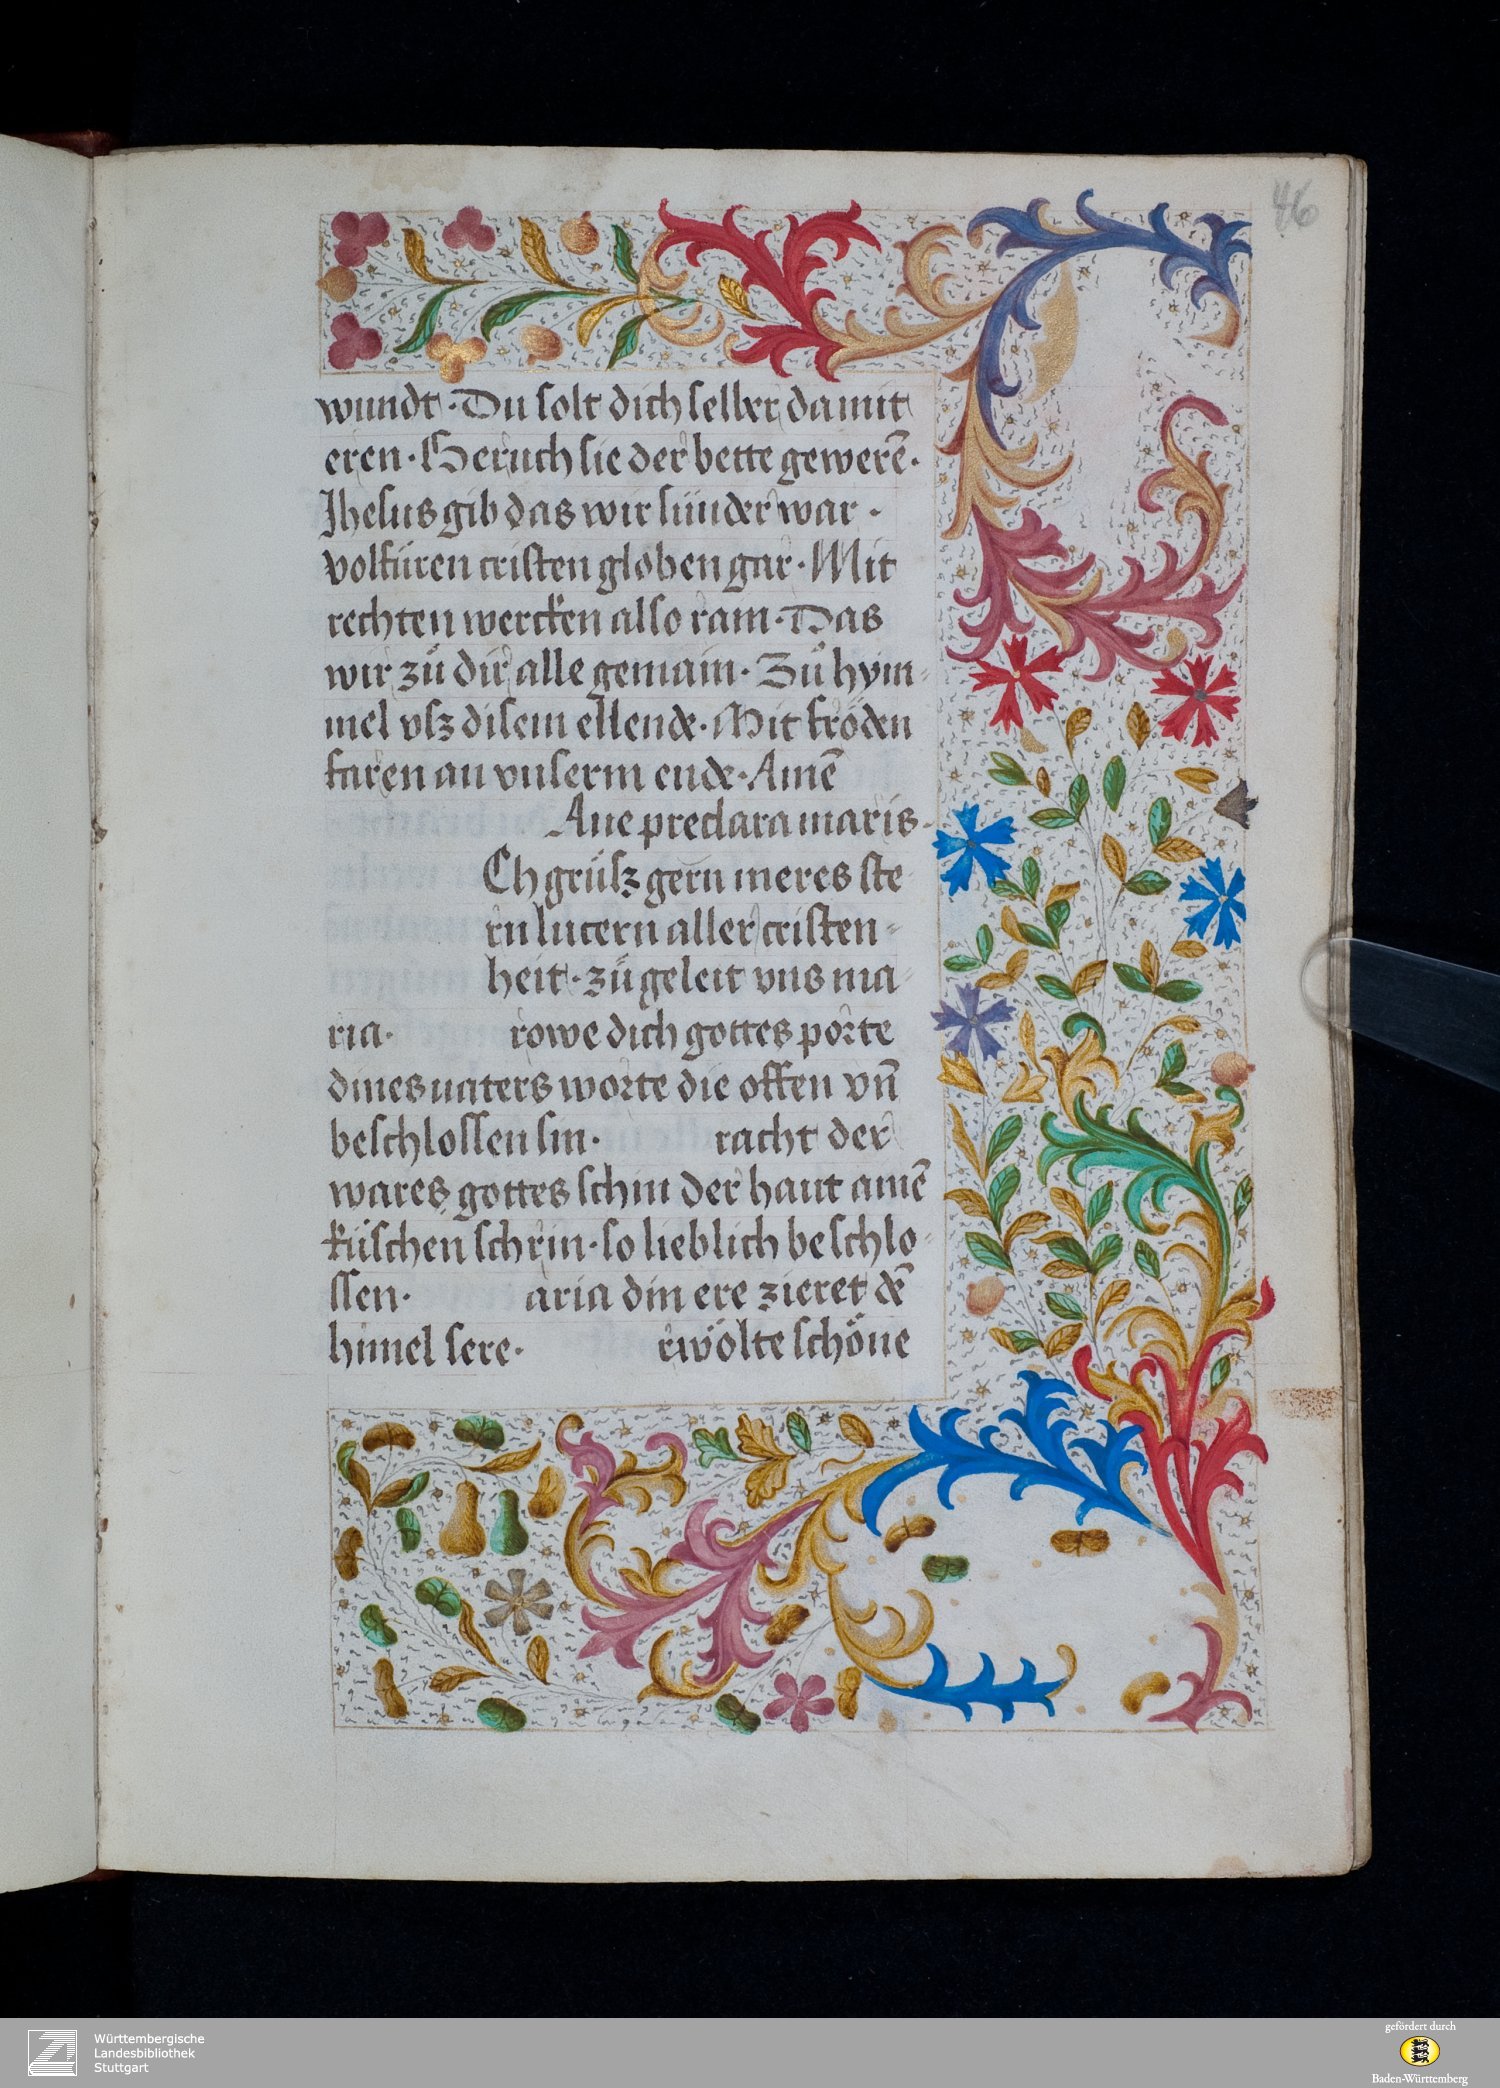 46
wundt · Du solt dich selber damit
eren · Geruch sie der bette gewerē ·
Jhesus gib das wir sünder war ·
volfüren cristen globen gar · Mit
rechten wercken also ram · Das
wir zů dir alle gemain · Zů hym-
mel vsz disem ellende · Mit fröden
faren an vnserm ende · Amē
Aue preclara maris
Ch grüsz gern meres ste
rn lucern aller cristen-
heit · zů geleit vns ma-
ria · rowe dich gottes porte
dines uaters worte die offen vn̄
beschlossen sin · racht der
wares gottes schin der haut amē
küschen schrin · so lieblich beschlo-
ssen · aria din ere zieret dē
himel sere · rwölte schöne
Württembergische
Landesbibliothek
Stuttgart
gefördert durch
Baden-Württemberg